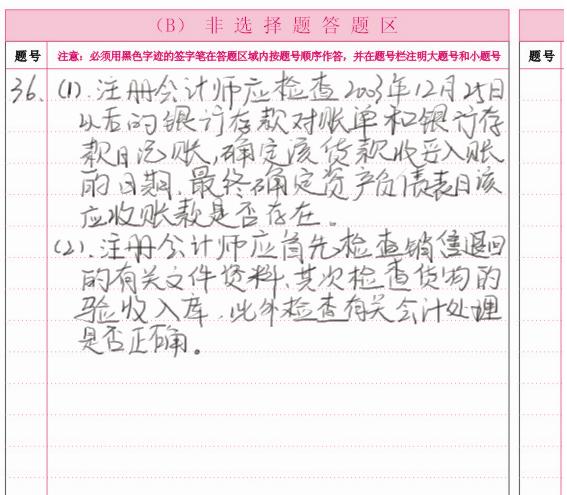 (B) 非选择题答题区
题号 注意：必须用黑色字迹的签字笔在答题区域内按题号顺序作答，并在题号栏注明大题号和小题号 题号
36、(1).注册会计师应检查2003年12月25日
以后的银行存款对账单和银行存
款日记账,确定该货款收妥入账
的日期.最终确定资产负债表日该
应收账款是否存在。
(2).注册会计师应首先检查销售退回
的有关文件资料、其次检查货物的
验收入库.此外检查有关会计处理
是否正确。